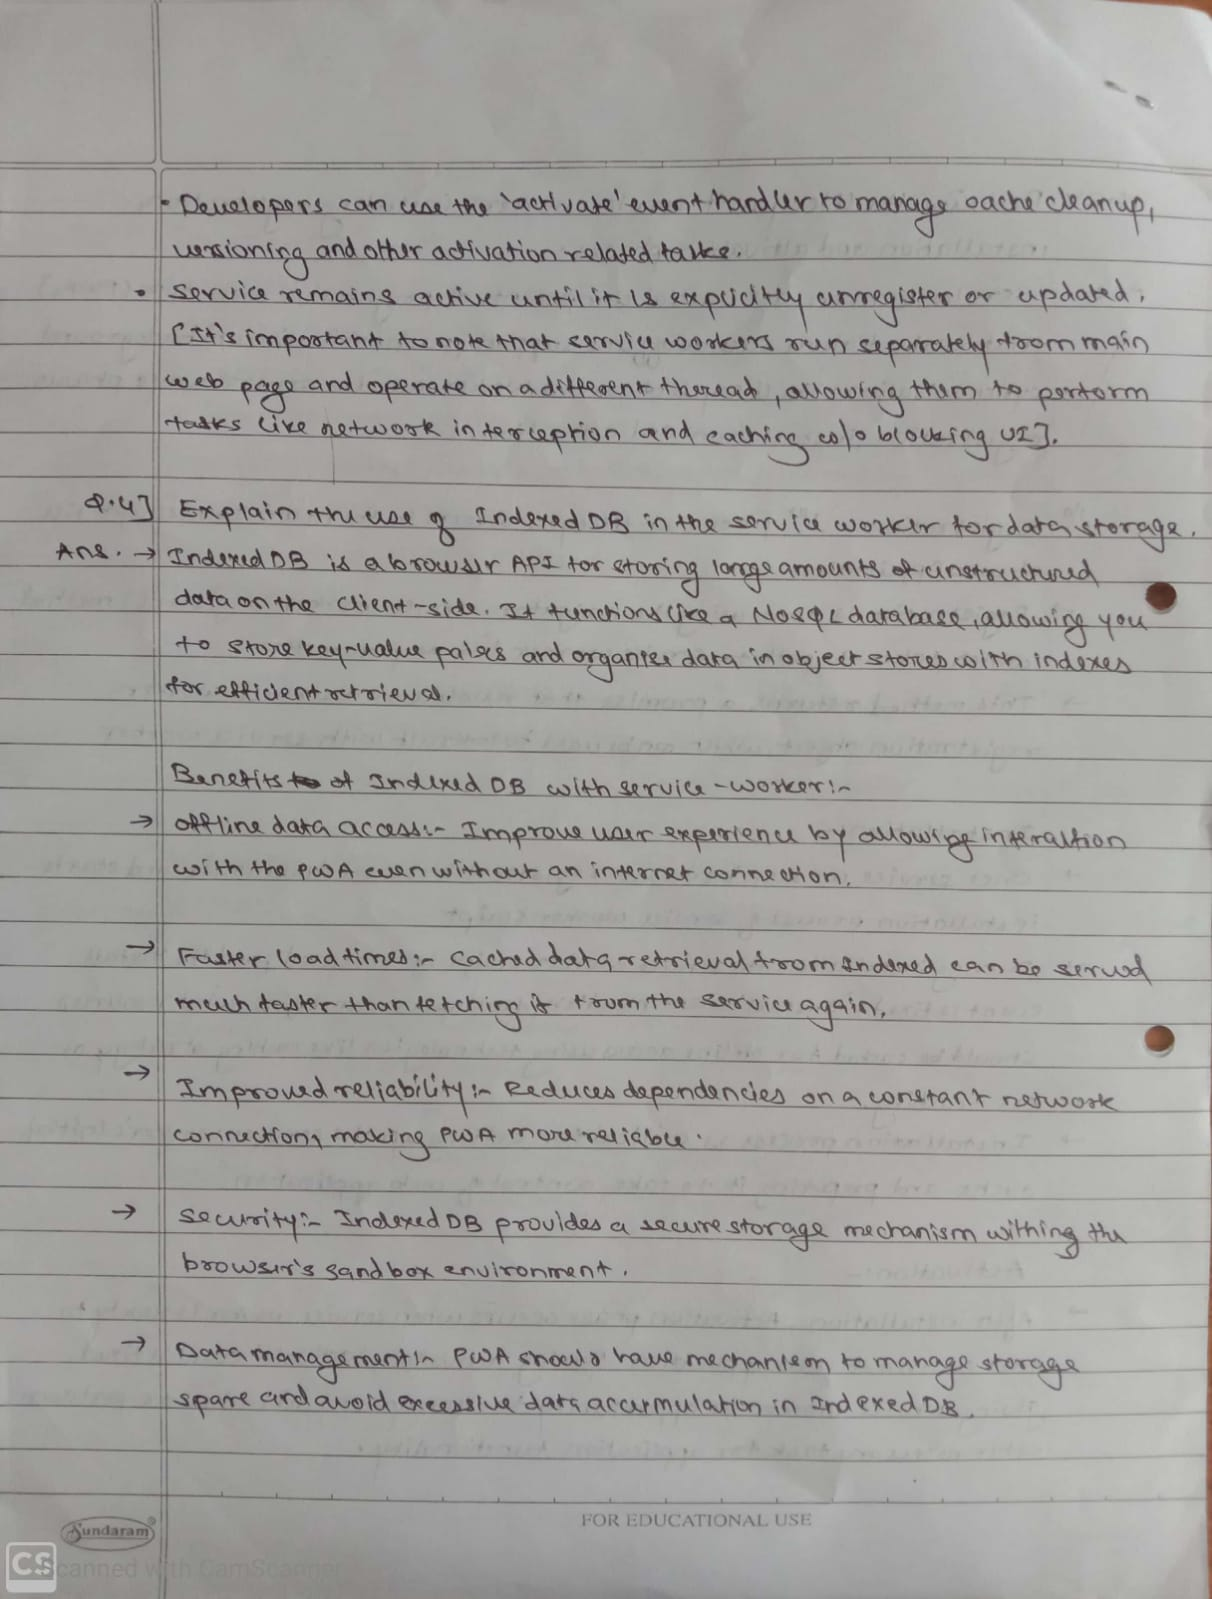 • Developers can use the 'activate' event handler to manage cache cleanup,
versioning and other activation related taske.
• Service remains active until it is explicitly unregister or updated.
[It's important to note that service workers run separately from main
web page and operate on a different theread, allowing them to perform
tasks like network interception and caching w/o blocking UI].
Q.4] Explain the use of Indexed DB in the service worker for data storage.
Ans. → Indexed DB is a browser API for storing large amounts of unstructured
data on the client-side. It functions like a NoSQL database, allowing you
to store key-value paires and organizes data in object stores with indexes
for efficient retrieval.
Benefits of Indexed DB with service-worker:-
→ Offline data access:- Improve user experience by allowing interaction
with the PWA even without an internet connection.
→ Faster load times:- Cached data retrieval from Indexed can be served
much faster than fetching it from the service again.
→ Improved reliability:- Reduces dependencies on a constant network
connection, making PWA more reliable.
→ Security:- Indexed DB provides a secure storage mechanism withing the
browser's sandbox environment.
→ Data management:- PWA should have mechanism to manage storage
spare and avoid excessive data accumulation in Indexed DB.
Sundaram
FOR EDUCATIONAL USE
CS Scanned with CamScanner